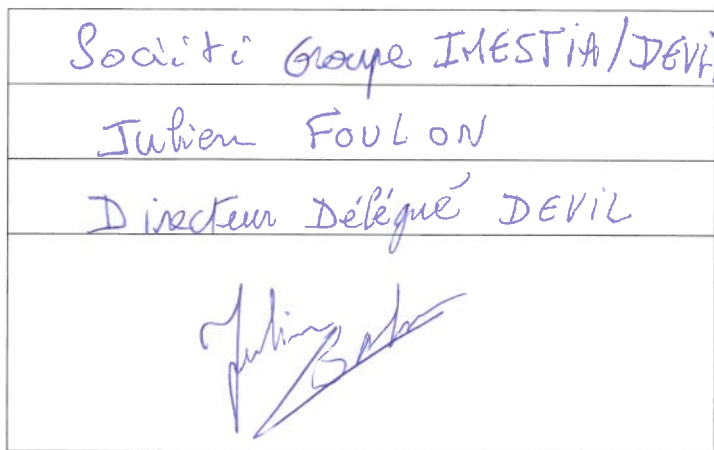 Société Groupe IMESTIA/DEVI
Julien FOULON
Directeur Délégué DEVIL
Julien